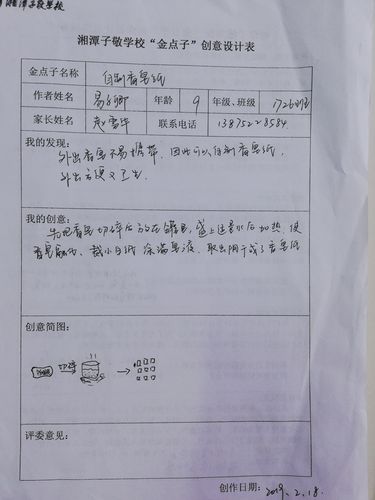 湘潭子敬学校
湘潭子敬学校“金点子”创意设计表
金点子名称 自制香皂纸
作者姓名 易 卿 年龄 9 年级、班级 1726班
家长姓名 赵雪华 联系电话 13875228584
我的发现:
外出香皂不易携带,因此可以自制香皂纸,
外出方便又卫生.
我的创意:
先把香皂切碎后放在罐里,盛上适量水后加热,使
香皂融化、裁小白纸涂满皂液、取出阴干成了香皂纸
创意简图:
切碎
评委意见:
创作日期: 2019.2.18.